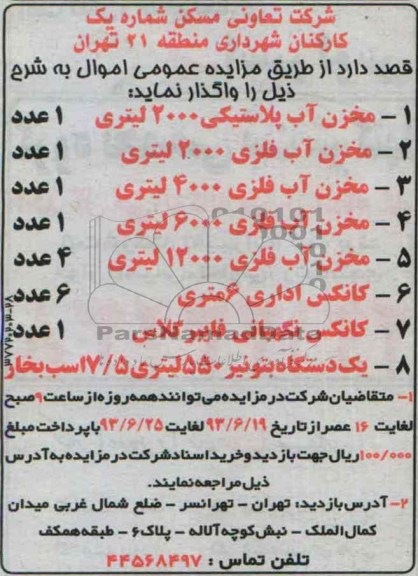 شرکت تعاونی مسکن شماره یک
کارکنان شهرداری منطقه ۲۱ تهران
قصد دارد از طریق مزایده عمومی اموال به شرح
ذیل را واگذار نماید:
۱ – مخزن آب پلاستیکی ۲۰۰۰ لیتری ۱ عدد
۲ – مخزن آب فلزی ۲۰۰۰ لیتری ۱ عدد
۳ – مخزن آب فلزی ۴۰۰۰ لیتری ۱ عدد
۴ – مخزن آب فلزی ۶۰۰۰ لیتری ۱ عدد
۵ – مخزن آب فلزی ۱۲۰۰۰ لیتری ۴ عدد
۶ – کانکس اداری ۶ متری ۶ عدد
۷ – کانکس نگهبانی فایبرگلاس ۱ عدد
۸ – یک دستگاه بتونیر ۵۵۰ لیتری ۷/۵ اسب بخار
۱– متقاضیان شرکت در مزایده می توانند همه روزه از ساعت ۹ صبح
لغایت ۱۶ عصر از تاریخ ۹۳/۶/۱۹ لغایت ۹۳/۶/۲۵ با پرداخت مبلغ
۱۰۰/۰۰۰ ریال جهت بازدید و خرید اسناد شرکت در مزایده به آدرس
ذیل مراجعه نمایند.
۲– آدرس بازدید: تهران – تهرانسر – ضلع شمال غربی میدان
کمال الملک – نبش کوچه آلاله – پلاک ۶ – طبقه همکف
تلفن تماس : ۴۴۵۶۸۴۹۷